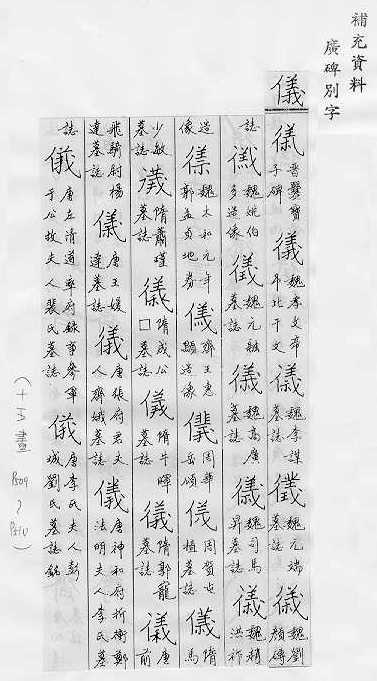 補充資料
廣碑別字
儀
儀 晉爨寶子碑 儀 魏孝文帝弔比干文 儀 魏李謀墓誌 儀 魏元端墓誌 儀 魏劉顏磚
誌 儀 魏姚伯多造像 儀 魏元融墓誌 儀 魏高廣墓誌 儀 魏司馬昇墓誌 魏趙洪祚
造像 儀 魏太和元年郭孟貞地券 儀 齊王惠顒造像 儀 周華岳頌 儀 周賀屯植墓誌 儀 隋馬
少敏墓誌 儀 隋蕭瑾墓誌 儀 隋成公□墓誌 儀 隋牛暉墓誌 儀 隋郭龍墓誌 儀 唐前
飛騎尉楊達墓誌 儀 唐王媛達墓誌 儀 唐張府君夫人齊娥墓誌 儀 唐神和府折衝鄭法明夫人李氏墓
誌 儀 唐左清道率府錄事參軍于公故夫人裴氏墓誌 儀 唐李氏夫人彭城劉氏墓誌銘
(十五畫 P509~P510)